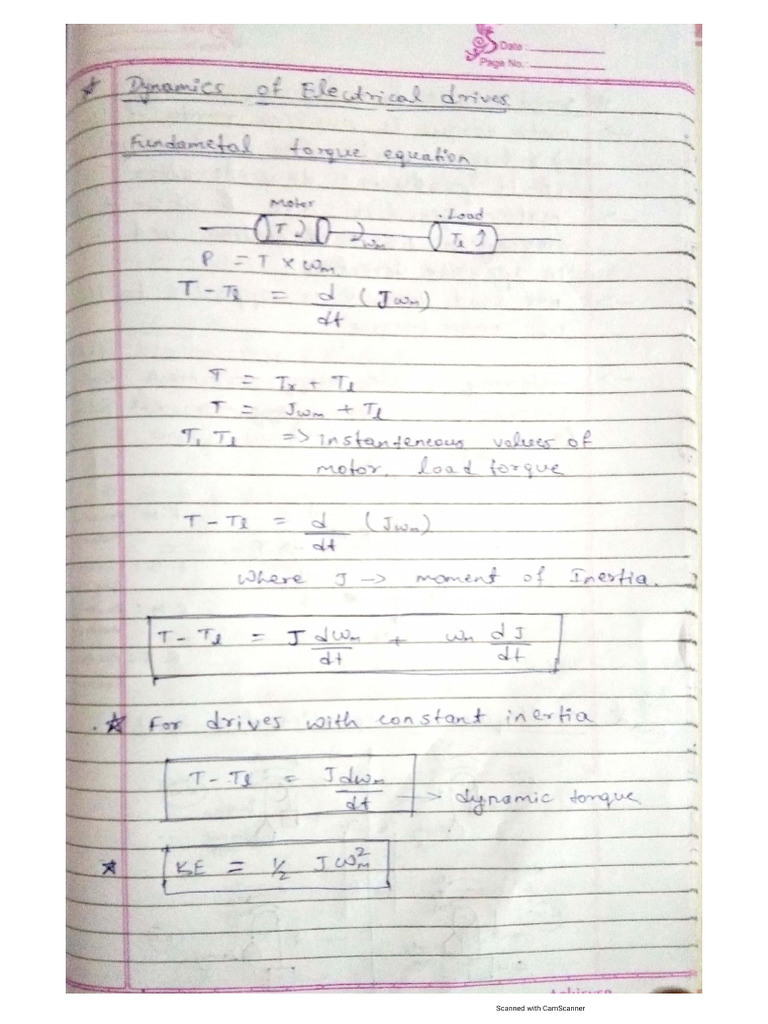 Date :
Page No. :
★ Dynamics of Electrical drives.
Fundametal torque equation
Motor Load
T ωm Tl
P = T × ωm
T - Tl = d/dt (Jωm)
T = Tx + Tl
T = Jωm + Tl
T, Tl => instanteneous values of
motor, load torque
T - Tl = d/dt (Jωm)
where J -> moment of Inertia.
T - Tl = J dωm/dt + ωm dJ/dt
★ For drives with constant inertia
T - Tl = J dωm/dt -> dynamic torque
★ KE = 1/2 Jωm²
Scanned with CamScanner